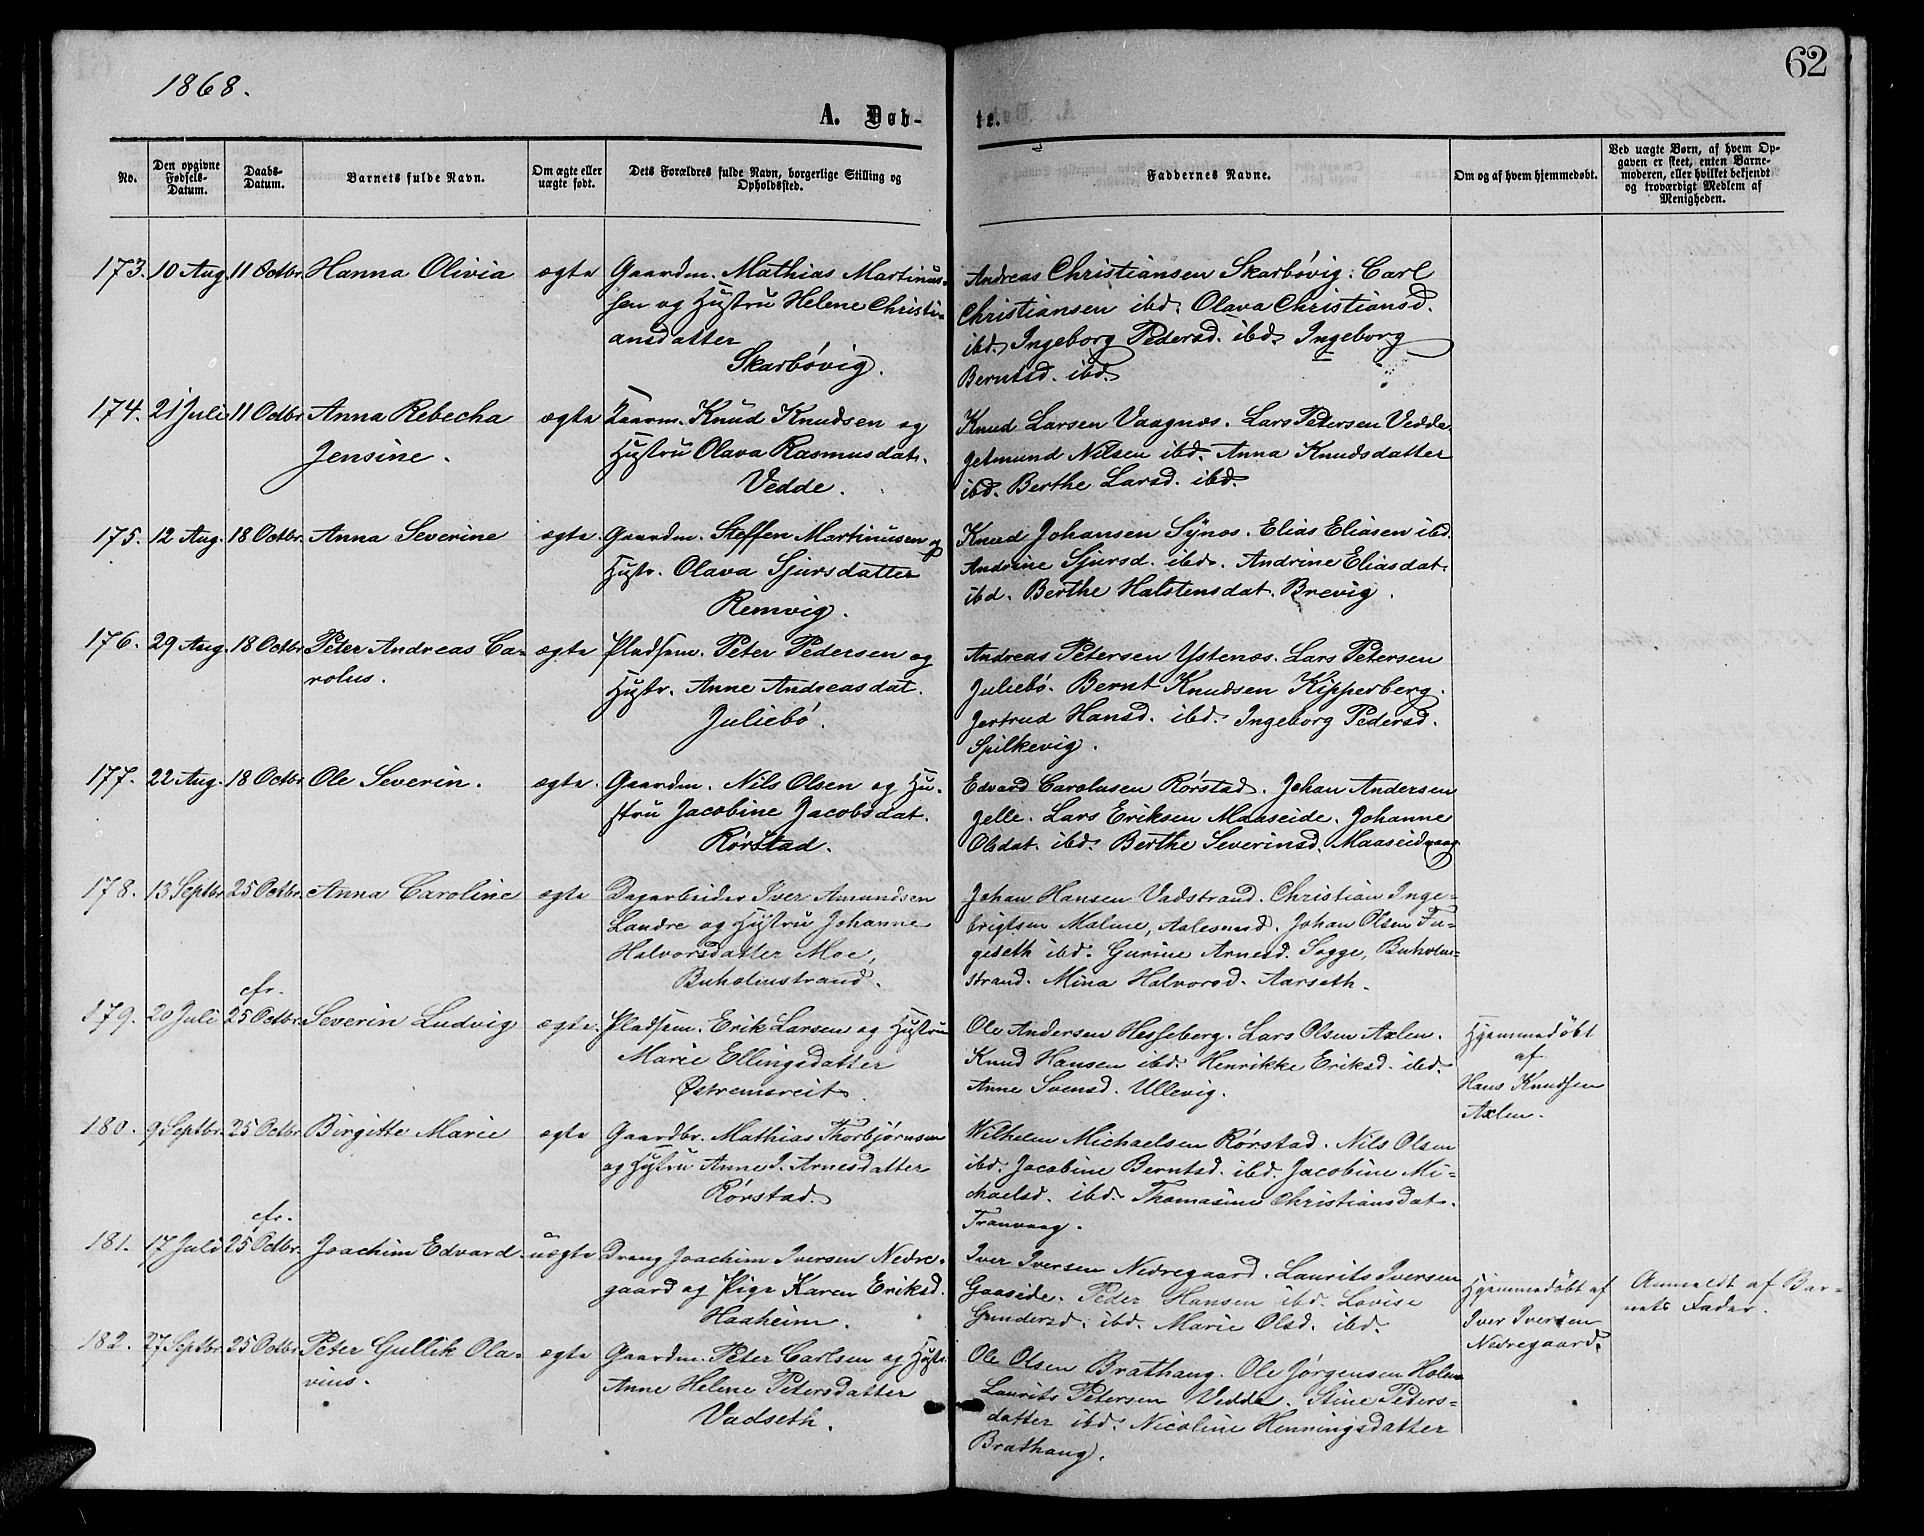 62
1868.
A. Døb-
te.
No.
Den opgivne Fødsels-Datum.
Daabs-Datum.
Barnets fulde Navn.
Om ægte eller uægte født.
Dets Forældres fulde Navn, borgerlige Stilling og Opholdssted.
Faddernes Navne.
Om og af hvem hjemmedøbt.
Ved uægte Børn, af hvem Op-
gaven er skeet, enten Barne-
moderen, eller hvilket bekjendt
og troværdigt Medlem af
Menigheden.
173. 10 Aug. 11 Octbr. Hanna Olivia ægte Gaardm. Mathias Martinus-
sen og Hustru Helene Christi-
ansdatter
Skarbøvig.
Andreas Christiansen Skarbøvig. Carl
Christiansen ibd. Olava Christiansd.
ibd. Ingeborg Pedersd. ibd. Ingeborg
Berntsd. ibd.
174. 21 Juli 11 Octbr. Anna Rebecha ægte Gaarm. Knud Knudsen og
Jensine. Hustru Olava Rasmusdat.
Vedde.
Knud Larsen Vaagnæs. Lars Petersen Vedde.
Jetmund Nilsen ibd. Anna Knudsdatter
ibd. Berthe Larsd. ibd.
175. 12 Aug. 18 Octbr. Anna Severine ægte. Gaardm. Steffen Martinusen og
Hustr. Olava Sjursdatter
Remvig.
Knud Johansen Synæs. Elias Eliasen ibd.
Andrine Sjursd. ibd. Andrine Eliasdat.
ibd. Berthe Halstensdat. Brevig.
176. 29 Aug. 18 Octbr. Peter Andreas Ca- ægte Pladsm. Peter Pedersen og
rolus. Hustr. Anne Andreasdat.
Juliebø.
Andreas Petersen Ystenæs. Lars Petersen
Juliebø. Bernt Knudsen Kipperberg.
Jertrud Hansd. ibd. Ingeborg Pedersd.
Spilkevig.
177. 22 Aug. 18 Octbr. Ole Severin. ægte. Gaardm. Nils Olsen og Hu-
stru Jacobine Jacobsdat.
Rørstad.
Edvard Carolusen Rørstad. Johan Andersen
Jelle. Lars Eriksen Maaseide. Johanne
Olsdat. ibd. Berthe Severinsd. Maaseidvaag
178. 13 Septbr. 25 Octbr. Anna Caroline ægte Dagarbeider Iver Amundsen
Landre og Hustru Johanne
Halvorsdatter Moe,
Buholmstrand.
Johan Hansen Vadstrand. Christian Inge-
brigtsen Malme, Aalesund. Johan Olsen Fu-
geseth ibd. Gurine Arnesd. Sogge, Buholm-
strand. Mina Halvorsd. Aarseth.
cfr.
179. 20 Juli 25 Octbr. Severin Ludvig ægte. Pladsm. Erik Larsen og Hustru
Marie Ellingsdatter
Østremsreit.
Ole Andersen Hesseberg. Lars Olsen Axlen.
Knud Hansen ibd. Henrikke Eriksd. ibd.
Anne Svensd. Ullevig.
Hjemmedøbt
af
Hans Knudsen
Axlen.
180. 9 Septbr. 25 Octbr. Birgitte Marie ægte Gaardbr. Mathias Thorbjørnsen
og Hustru Anne I. Arnesdatter
Rørstad.
Wilhelm Michaelsen Rørstad. Nils Olsen
ibd. Jacobine Berntsd. ibd. Jacobine Mi-
chaelsd. ibd. Thomasine Christiansdat.
Tranvaag.
cfr.
181. 17 Juli 25 Octbr. Joachim Edvard uægte Dreng Joachim Iversen Nedre-
gaard og Pige Karen Eriksd.
Haaheim.
Iver Iversen Nedregaard. Laurits Iversen
Gaaside. Peder Hansen ibd. Lovise
Gundersd. ibd. Marie Olsd. ibd.
Hjemmedøbt af
Iver Iversen
Nedregaard.
Anmeldt af Bar-
nets Fader.
182. 27 Septbr. 25 Octbr. Peter Gullik Ola- ægte Gaardm. Peter Carlsen og Hust.
vius. Anne Helene Petersdatter
Vadseth.
Ole Olsen Brathaug. Ole Jørgensen Holm
Laurits Petersen Vedde. Stine Peders-
datter ibd. Nicoline Henningsdatter
Brathaug.